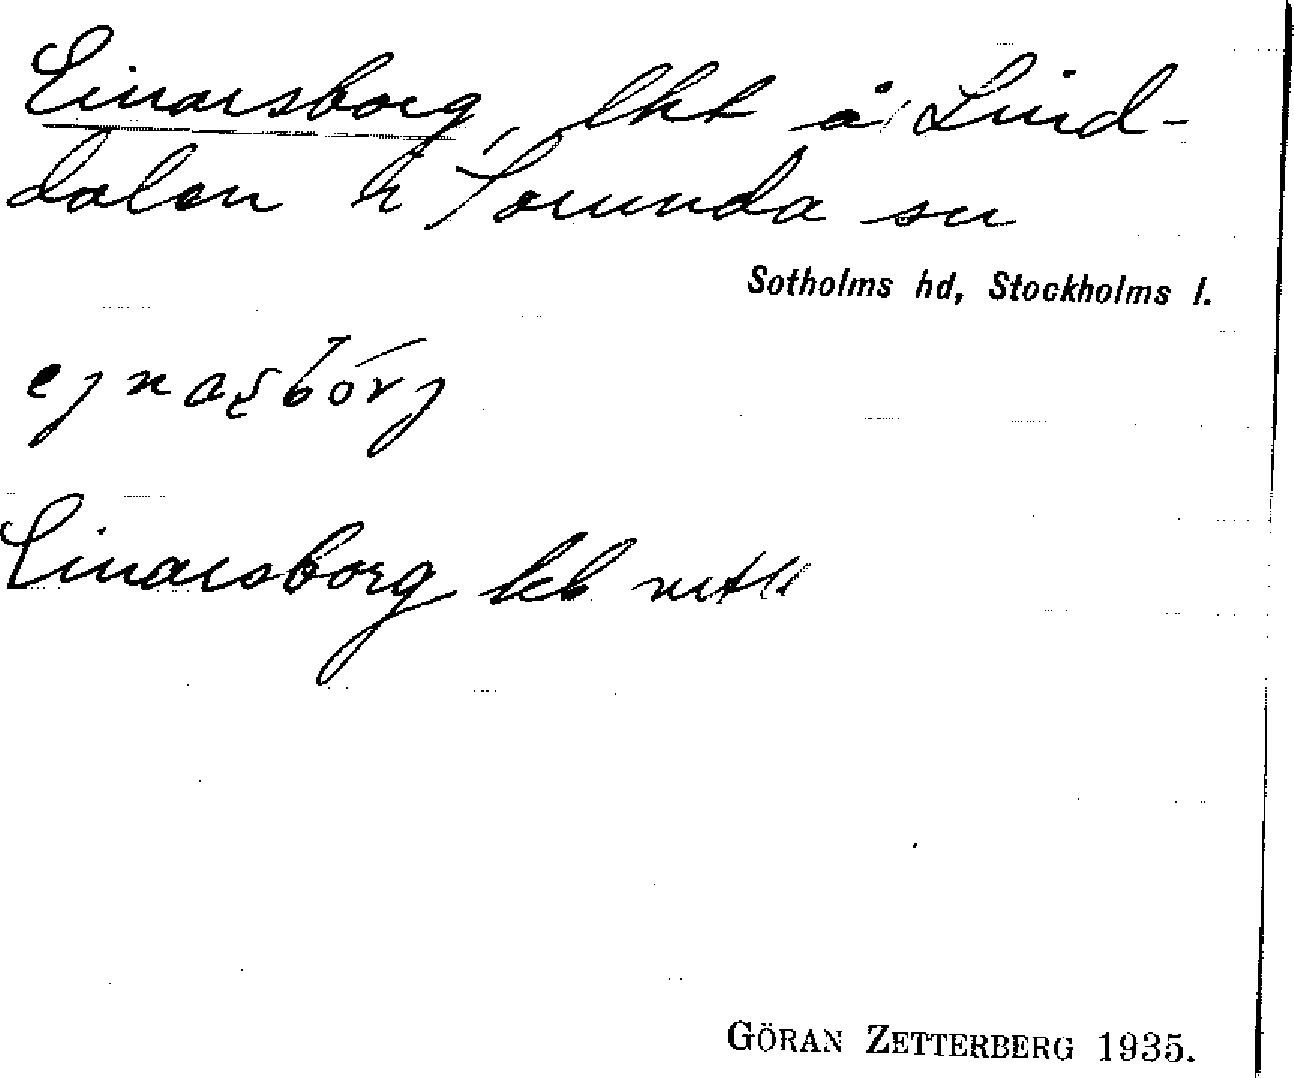 Einarsborg, lht å Lind-
dalen h Sorunda sn
Sotholms hd, Stockholms l.
ejnaʂbórj
Einarsborg kb
GÖRAN ZETTERBERG 1935.